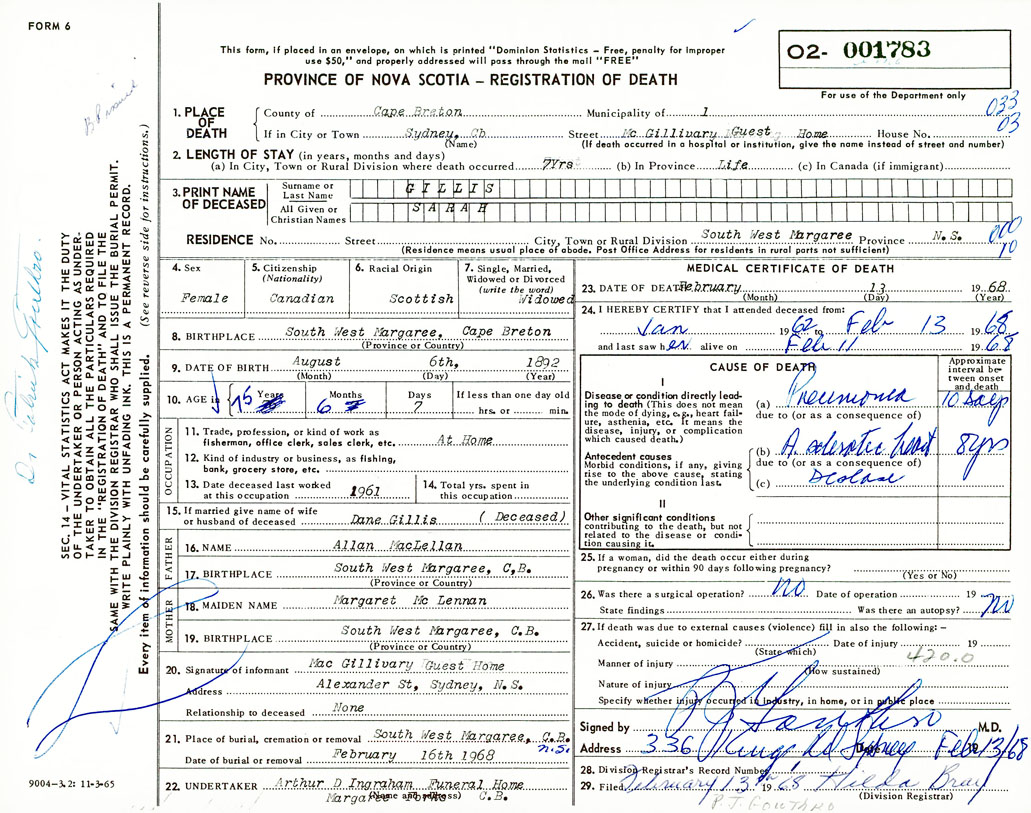 FORM 6
This form, if placed in an envelope, on which is printed "Dominion Statistics – Free, penalty for improper
use $50," and properly addressed will pass through the mail "FREE"
PROVINCE OF NOVA SCOTIA – REGISTRATION OF DEATH
02- 001783
For use of the Department only
033
03
1. PLACE OF DEATH
County of Cape Breton Municipality of 1
If in City or Town Sydney, Cb Street Mc Gillivary Guest Home House No.
(Name) (If death occurred in a hospital or institution, give the name instead of street and number)
2. LENGTH OF STAY (in years, months and days)
(a) In City, Town or Rural Division where death occurred 7Yrs (b) In Province Life (c) In Canada (if immigrant)
3. PRINT NAME OF DECEASED
Surname or Last Name GILLIS
All Given or Christian Names SARAH
RESIDENCE No. Street City, Town or Rural Division South West Margaree Province N.S.
(Residence means usual place of abode. Post Office Address for residents in rural parts not sufficient)
000
10
4. Sex Female
5. Citizenship (Nationality) Canadian
6. Racial Origin Scottish
7. Single, Married, Widowed or Divorced (write the word) Widowed
8. BIRTHPLACE South West Margaree, Cape Breton
(Province or Country)
9. DATE OF BIRTH August 6th, 1892
(Month) (Day) (Year)
10. AGE in Years 75 Months 6 Days 7 If less than one day old hrs. or min.
OCCUPATION
11. Trade, profession, or kind of work as fisherman, office clerk, sales clerk, etc. At Home
12. Kind of industry or business, as fishing, bank, grocery store, etc.
13. Date deceased last worked at this occupation 1961
14. Total yrs. spent in this occupation
15. If married give name of wife or husband of deceased Dane Gillis (Deceased)
FATHER
16. NAME Allan MacLellan
17. BIRTHPLACE South West Margaree, C,B.
(Province or Country)
MOTHER
18. MAIDEN NAME Margaret Mc Lennan
19. BIRTHPLACE South West Margaree, C.B.
(Province or Country)
20. Signature of informant Mac Gillivary Guest Home
Address Alexander St, Sydney, N.S.
Relationship to deceased None
21. Place of burial, cremation or removal South West Margaree, C.B.
N.S.
Date of burial or removal February 16th 1968
22. UNDERTAKER Arthur D Ingraham Funeral Home
Margaree Forks C.B.
(Name and address)
MEDICAL CERTIFICATE OF DEATH
23. DATE OF DEATH February 13 1968.
(Month) (Day) (Year)
24. I HEREBY CERTIFY that I attended deceased from:
Jan 1962 to Feb 13 1968
and last saw her alive on Feb 11 1968
CAUSE OF DEATH
Approximate interval between onset and death
I
Disease or condition directly leading to death (This does not mean the mode of dying, e.g., heart failure, asthenia, etc. It means the disease, injury, or complication which caused death.)
(a) Pneumonia 10 days
due to (or as a consequence of)
Antecedent causes
Morbid conditions, if any, giving rise to the above cause, stating the underlying condition last.
(b) A. sclerotic heart 8yrs
due to (or as a consequence of)
(c) Disease
II
Other significant conditions
contributing to the death, but not related to the disease or condition causing it.
25. If a woman, did the death occur either during pregnancy or within 90 days following pregnancy?
(Yes or No)
26. Was there a surgical operation? no Date of operation 19
State findings Was there an autopsy? no
27. If death was due to external causes (violence) fill in also the following:–
Accident, suicide or homicide? Date of injury 19
(State which)
420.0
Manner of injury
(How sustained)
Nature of injury
Specify whether injury occurred in Industry, in home, or in public place
Signed by M.D.
Address 336 Kings Rd Sydney Date Feb 13/68
28. Division Registrar's Record Number
29. Filed February 13th 1968 Hilda Bray
(Division Registrar)
P.J. GOUTHRO
SEC. 14 – VITAL STATISTICS ACT MAKES IT THE DUTY
OF THE UNDERTAKER OR PERSON ACTING AS UNDER-
TAKER TO OBTAIN ALL THE PARTICULARS REQUIRED
IN THE "REGISTRATION OF DEATH" AND TO FILE THE
SAME WITH THE DIVISION REGISTRAR WHO SHALL ISSUE THE BURIAL PERMIT.
WRITE PLAINLY WITH UNFADING INK. THIS IS A PERMANENT RECORD.
Every item of information should be carefully supplied. (See reverse side for instructions.)
9004-3.2: 11-3-65